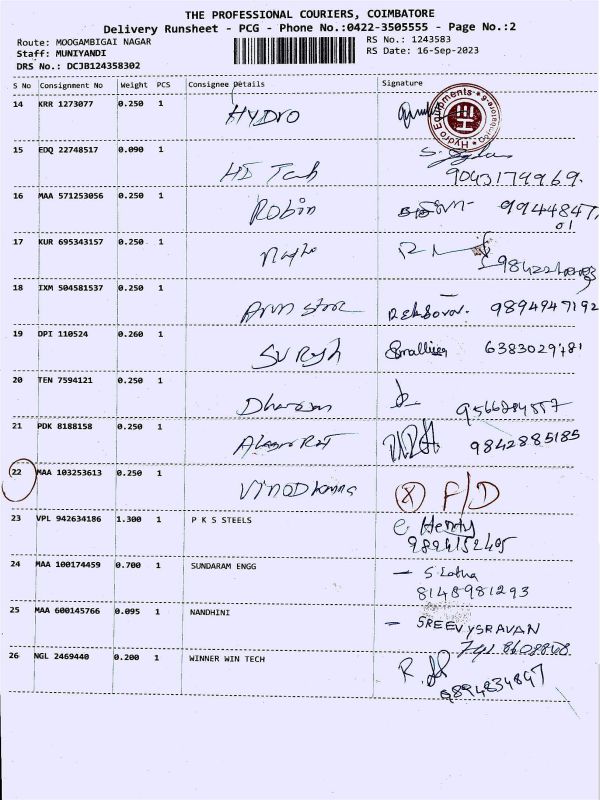 THE PROFESSIONAL COURIERS, COIMBATORE
Delivery Runsheet - PCG - Phone No.:0422-3505555 - Page No.:2
Route: MOOGAMBIGAI NAGAR RS No.: 1243583
Staff: MUNIYANDI RS Date: 16-Sep-2023
DRS No.: DCJB124358302
S No Consignment No Weight PCS Consignee Details Signature
14 KRR 1273077 0.250 1 HYDRO
Hydro Equipments
15 EDQ 22748517 0.090 1 HI Tech
9043179969.
16 MAA 571253056 0.250 1 Robin 9944847,
01
17 KUR 695343157 0.250 1
18 IXM 504581537 0.250 1 9894947192
19 DPI 110524 0.260 1 SURESH 6383029781
20 TEN 7594121 0.250 1
21 PDK 8188158 0.250 1 9842885185
22 MAA 103253613 0.250 1 (8) F/D
23 VPL 942634186 1.300 1 P K S STEELS Henry
9894152405
24 MAA 100174459 0.700 1 SUNDARAM ENGG - S. Latha
8148981293
25 MAA 600145766 0.095 1 NANDHINI - SREEVYSRAVAN
26 NGL 2469440 0.200 1 WINNER WIN TECH
9894834847